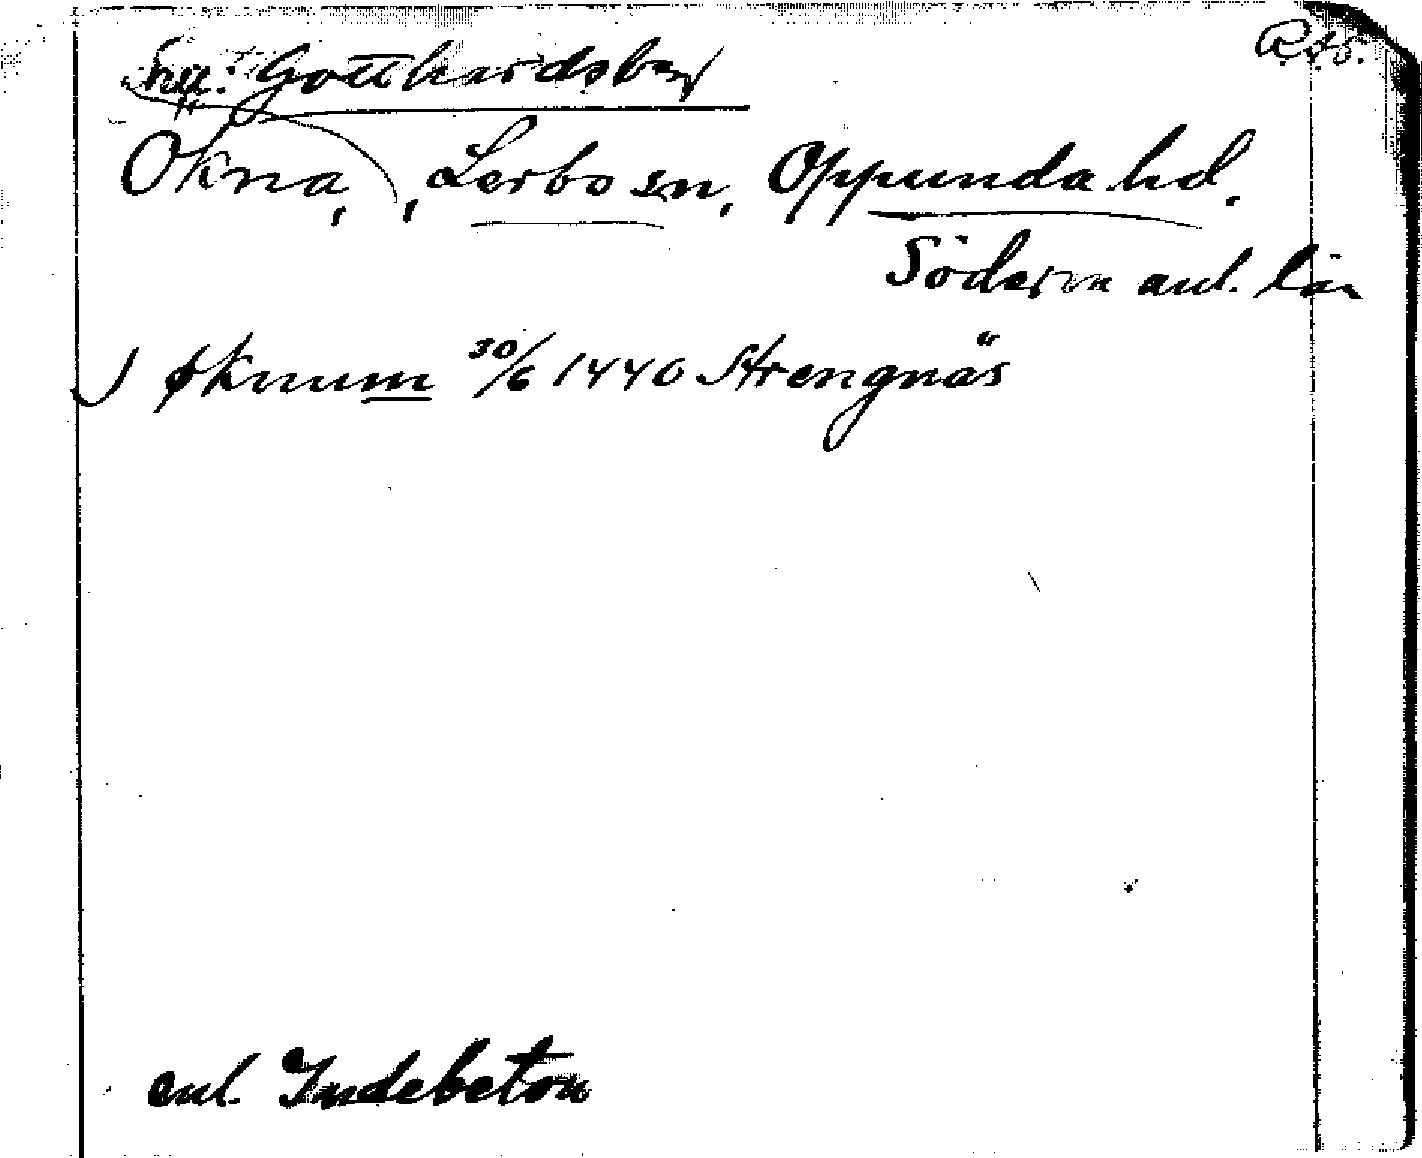 nu: Gotthardsberg
R.A.
Ökna, Lerbo sn, Oppunda hd.
Söderm anl. län
J øknum 30/6 1440 Strengnäs
enl. Indebetou